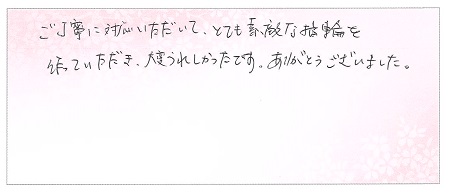 ご丁寧に対応いただいて、とても素敵な指輪を
作っていただき、大変うれしかったです。ありがとうございました。